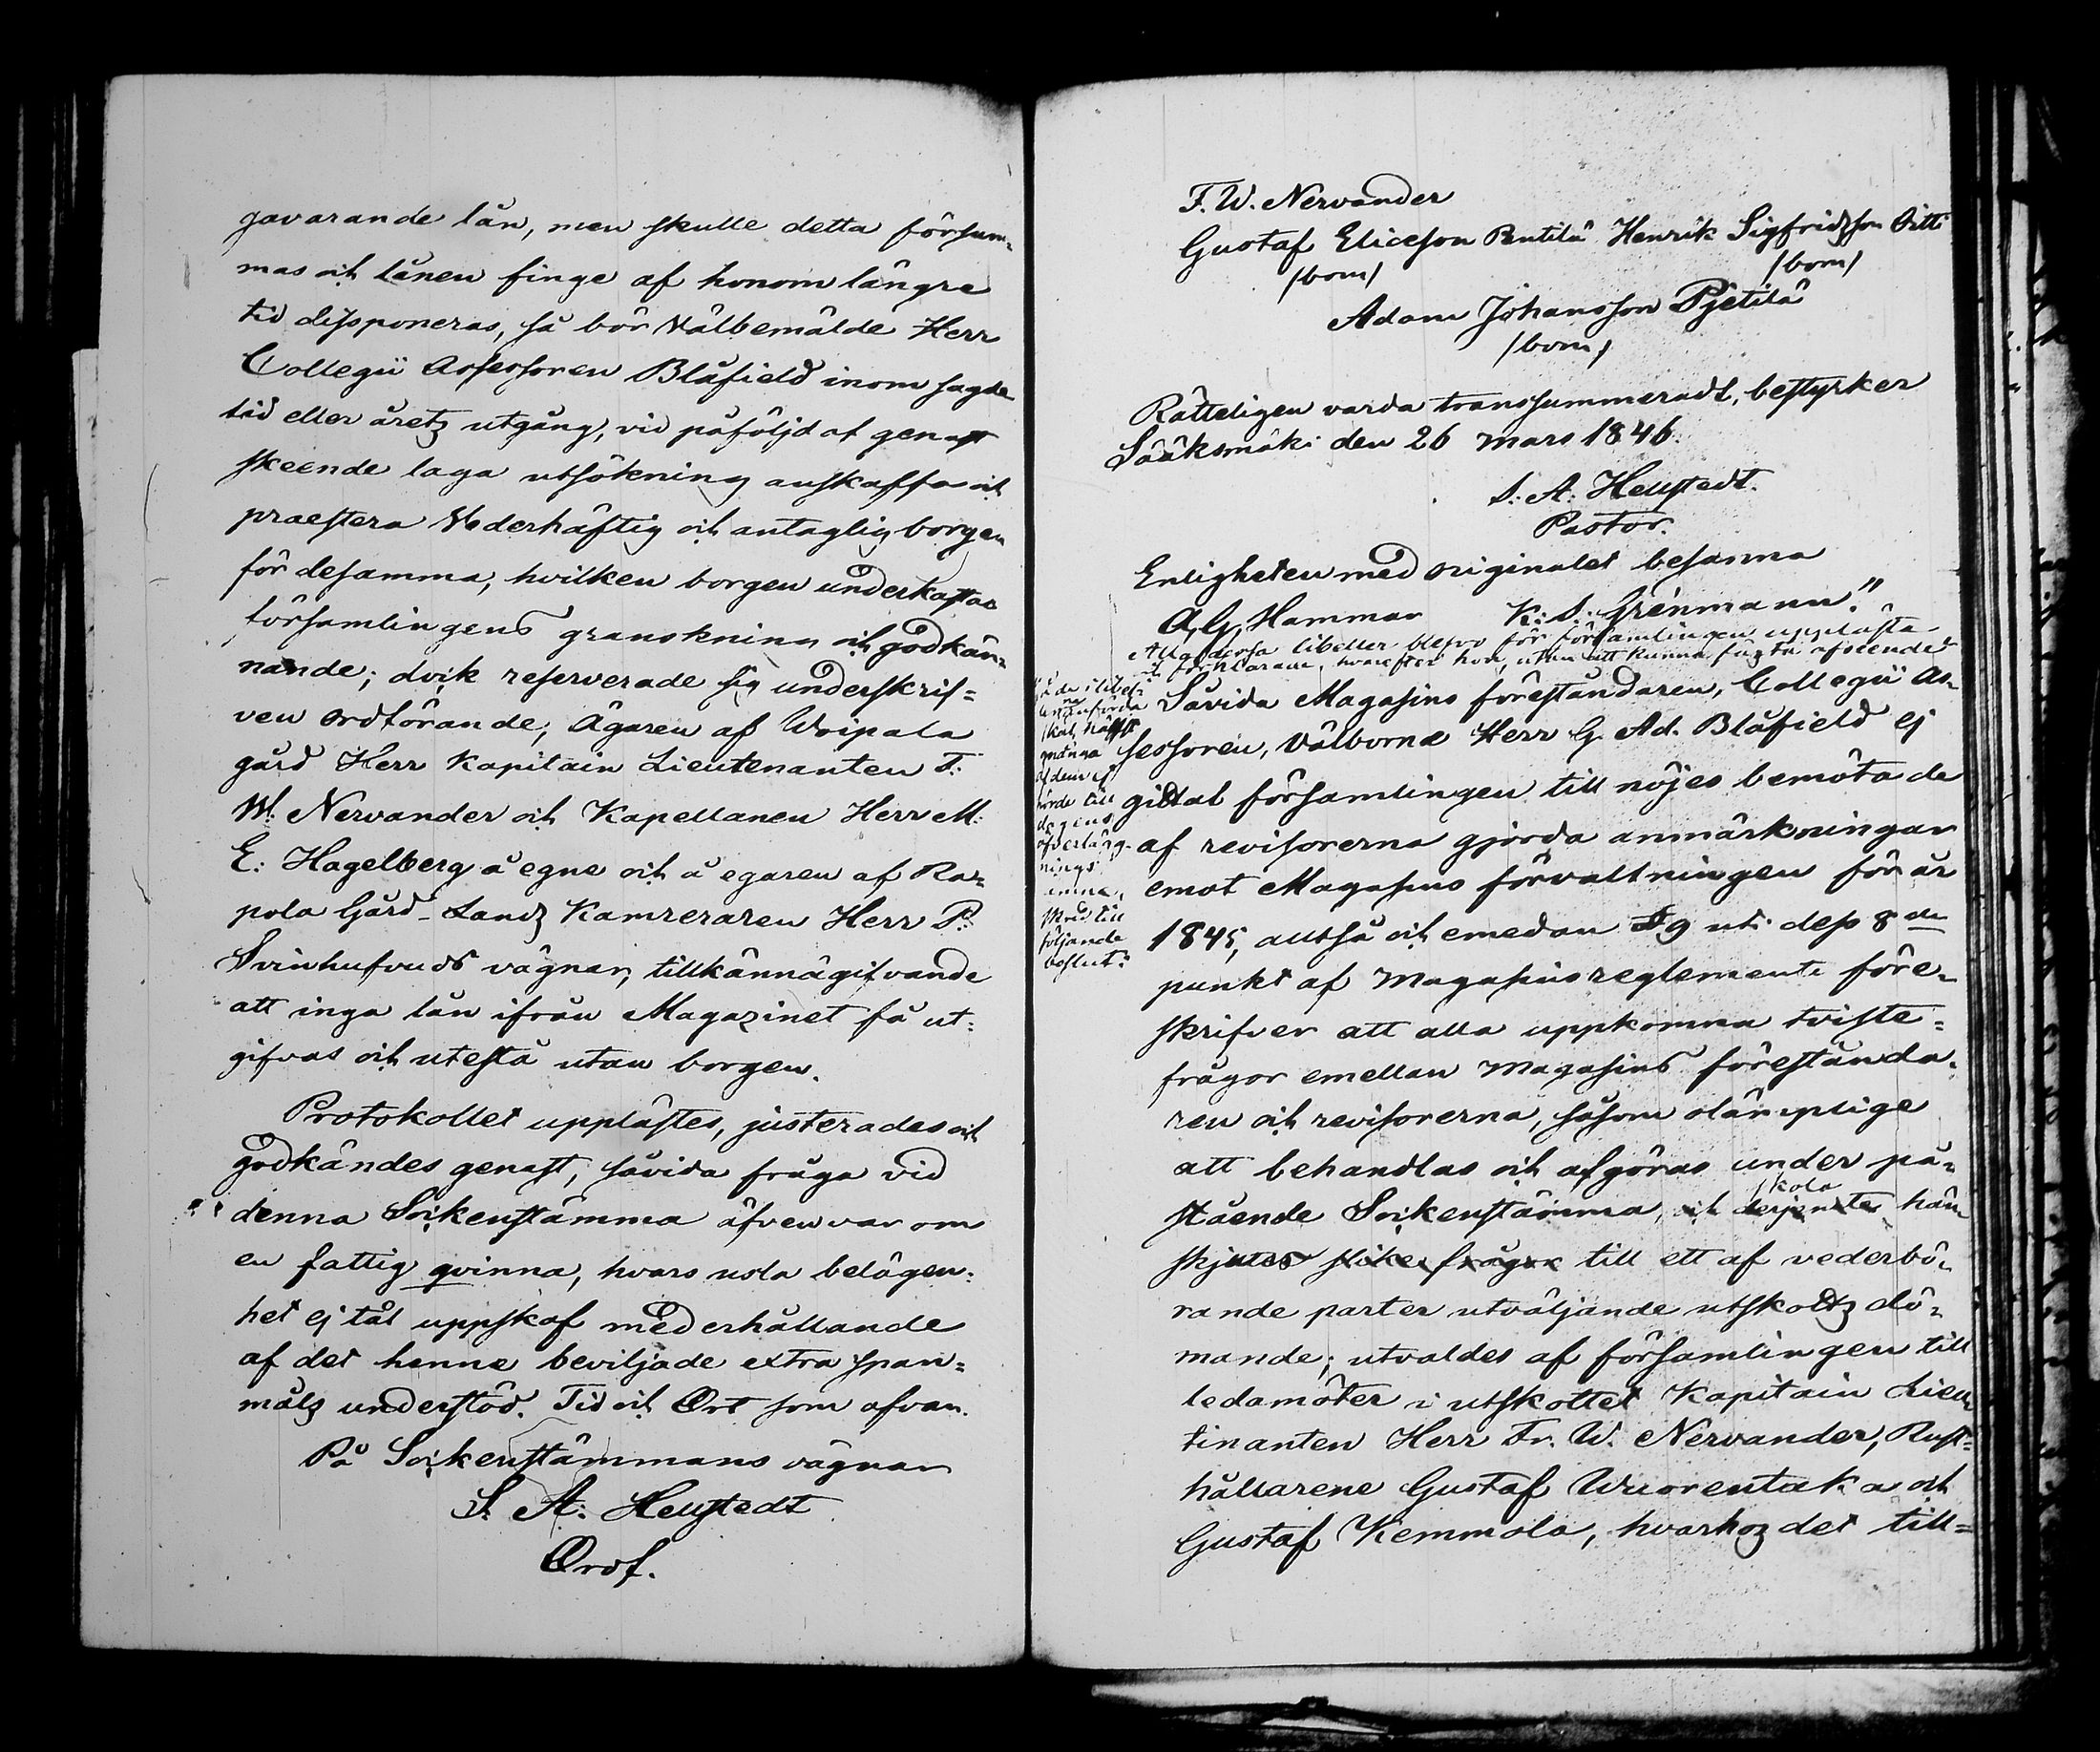 gavarande lån, men skulle detta försum=
mas och lånen finge af honom längre
tid dissponeras, så bör Välbemälde Herr
Collegii Assessoren Blåfield inom sagde
tid eller åretz utgång, vid påföljd af genast
skeende laga utsökning anskaffa och
praestera Vederhäftig och antaglig borgen
för desamma, hvilken borgen underkastas
församlingens granskning och godkän=
nande; dock reserverade sig underskrif=
ven Ordförande, Ägaren af Woipala
gård Herr Kapitain Lieutenanten F:
W: Nervander och Kapellanen Herr M:
E: Hagelberg å egne och å egaren af Ra=
pola Gård Landz Kamreraren Herr P:
Svinhufvuds vägnar, tillkännagifvande
att inga lån ifrån Magazinet få ut=
gifvas och utestå utan borgen.
Protokollet upplästes, justerades och
godkändes genast, såvida fråga vid
denna Sockenstämma äfven var om
en fattig qvinna, hvars usla belägen=
het ej tål uppskof med erhållande
af det henne beviljade extra span=
måls understöd. Tid och Ort som ofvan.
På Sockenstämmans vägnar
S. A. Hellstedt
Ordf.
F. W. Nervander
Gustaf Ericsson Pentilä Henrik Sigfridsson Pitti
/bom/ /bom/
Adam Johansson Pjetilä
/bom/
Rätteligen varda transsummeradt, bestyrker
Sääksmäki den 26 Mars 1846.
S: A: Hellstedt.
Pastor.
Enligheten med originalet besanna
A, G, Hammar K: S: Grénmann."
Alla dessa libeller blefvo för församlingen upplästa
och förklarade, hvarefter hon, utan att kunna fästa afseende
å de i libel=
anförda
skäl,
af dem ej
hörde till
dagens
öfverlägg=
nings
ämne,
skred till
följande
beslut:
Såvida Magasins föreståndaren, Collegii As=
sessoren, Välborne Herr G. Ad. Blåfield ej
gittat församlingen till nöjes bemöta de
af revisorerna gjorda anmärkningar
emot Magasins förvaltningen för år
1845, alltså och emedan § 9 uti dess 8de
punkt af Magasinsreglemente före=
skrifver att alla uppkomna tviste=
frågor emellan Magasins förestånda=
ren och revisorerna, såsom olämplige
att behandlas och afgöras under på=
stående Sockenstämma, och skola hän=
skjutas slika frågor till ett af vederbö=
rande parter utväljande utskottz dö=
mande; utvaldes af församlingen till
ledamöter i utskottet Kapitain Lieu=
tinanten Herr Fr. W. Nervander, Rust=
hållarene Gustaf Wuorentaka och
Gustaf Kemmola, hvarhoz det till=